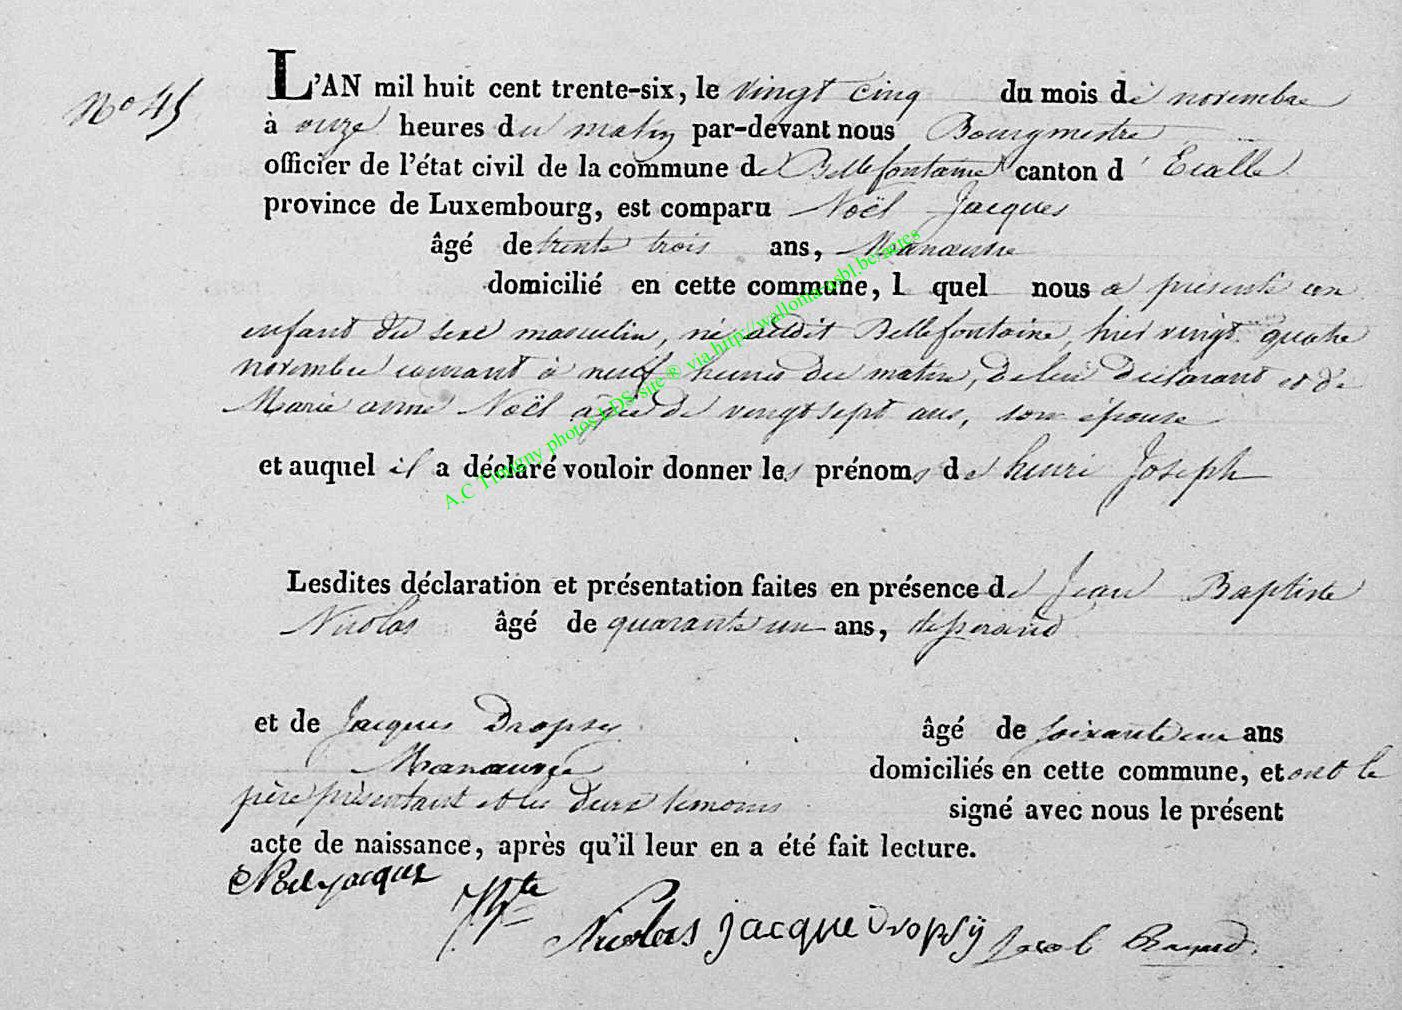 N° 45
L'AN mil huit cent trente-six, le vingt cinq du mois de novembre
à onze heures du matin par-devant nous Bourgmestre
officier de l'état civil de la commune de Bellefontaine canton d' Etalle
province de Luxembourg, est comparu Noël Jacques
âgé de trente trois ans, Manœuvre
domicilié en cette commune, l quel nous a présenté un
enfant du sexe masculin, né audit Bellefontaine, hier vingt quatre
novembre courant à neuf heures du matin, de lui déclarant et de
Marie anne Noël agée de vingt sept ans, son épouse
et auquel il a déclaré vouloir donner les prénoms de henri Joseph
Lesdites déclaration et présentation faites en présence de Jean Baptiste
Nicolas âgé de quarante un ans, tisserand
et de Jacques Dropsy âgé de soixante un ans
Manœuvre domiciliés en cette commune, et ont le
père présentant et les deux temoins signé avec nous le présent
acte de naissance, après qu'il leur en a été fait lecture.
Noel jacques
Nicolas jacque Dropsÿ Jacob
A.C Tintigny photos LDS site ® via http://wallonia-asbl.be/actes